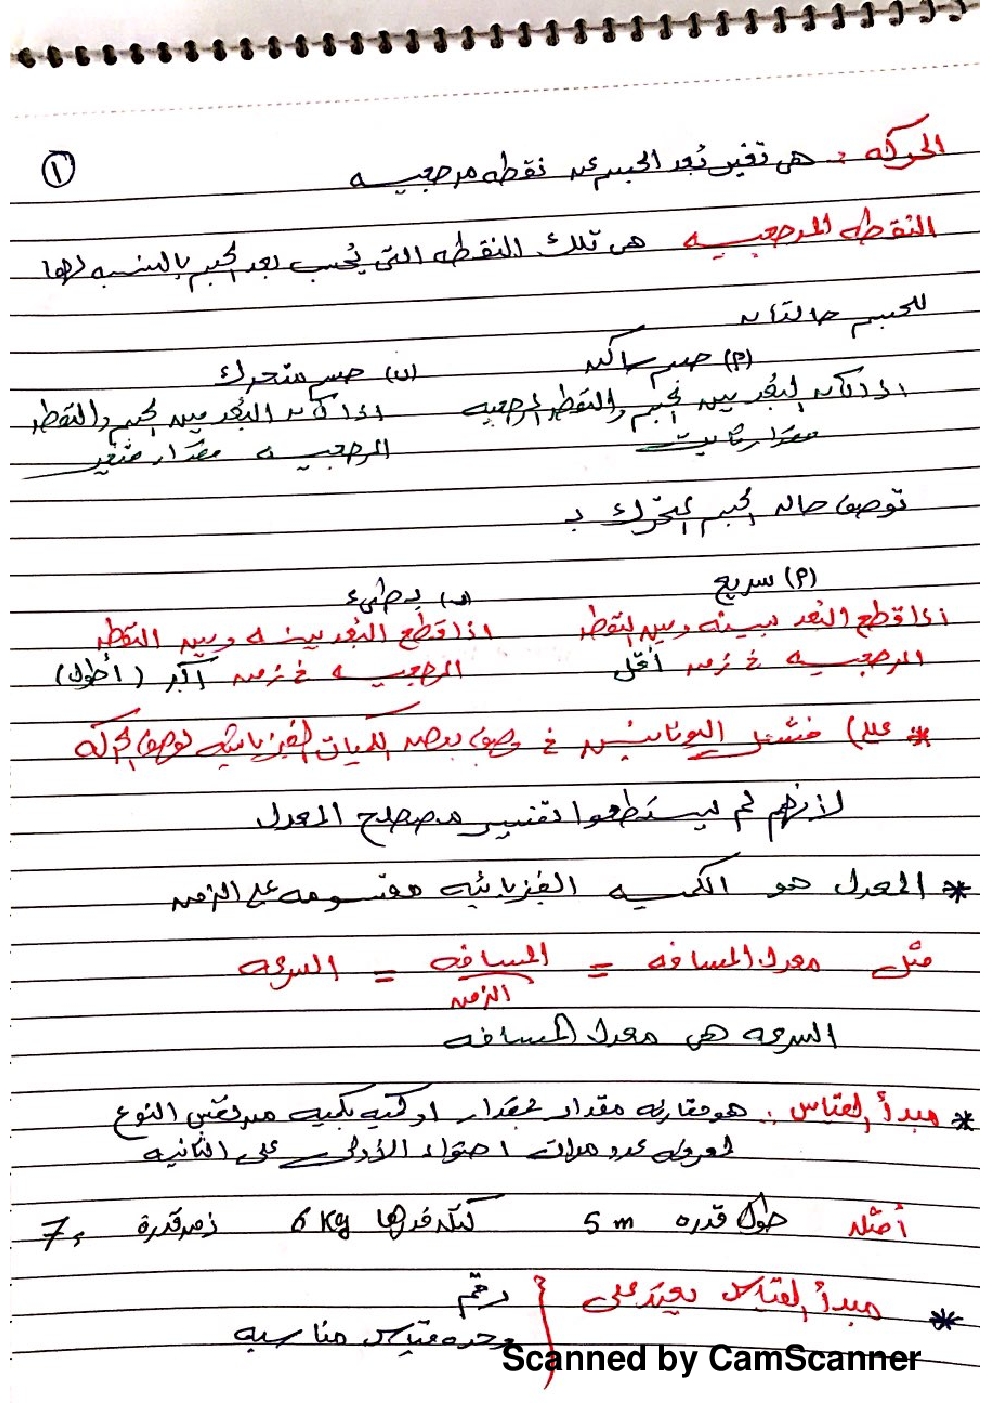 ١
الحركه : هي تغير بُعد الجسم عن نقطه مرجعيه
النقطه المرجعيه هي تلك النقطه التي يُحسب بعد الجسم بالنسبه لها
للجسم حالتان
(أ) جسم ساكن (ب) جسم متحرك
اذا كان البُعد بين الجسم والنقطه المرجعيه اذا كان البُعد بين الجسم والنقطه
مقدار ثابت المرجعيه مقدار متغير
توصف حاله الجسم المتحرك بـ
(أ) سريع (ب) بطيء
اذا قطع البُعد بينه وبين النقطه اذا قطع البُعد بينه وبين النقطه
المرجعيه في زمن أقل المرجعيه في زمن أكبر (أطول)
* علل) فشل اليونانيين في وصف بعض الكميات الفيزيائيه لوصف الحركه
لأنهم لم يستطعوا تفسير مصطلح المعدل
* المعدل هو الكميه الفيزيائيه مقسومه على الزمن
مثل معدل المسافه = المسافه / الزمن = السرعه
السرعه هي معدل المسافه
* مبدأ القياس : هو مقارنه مقدار بمقدار او كميه بكميه من نفس النوع
لمعرفه عدد مرات احتواء الأولى على الثانيه
أمثله طول قدره 5 m كتله قدرها 6 Kg زمن قدرة 7 s
* مبدأ القياس يعتمد على رقم
وحده قياس مناسبه
Scanned by CamScanner